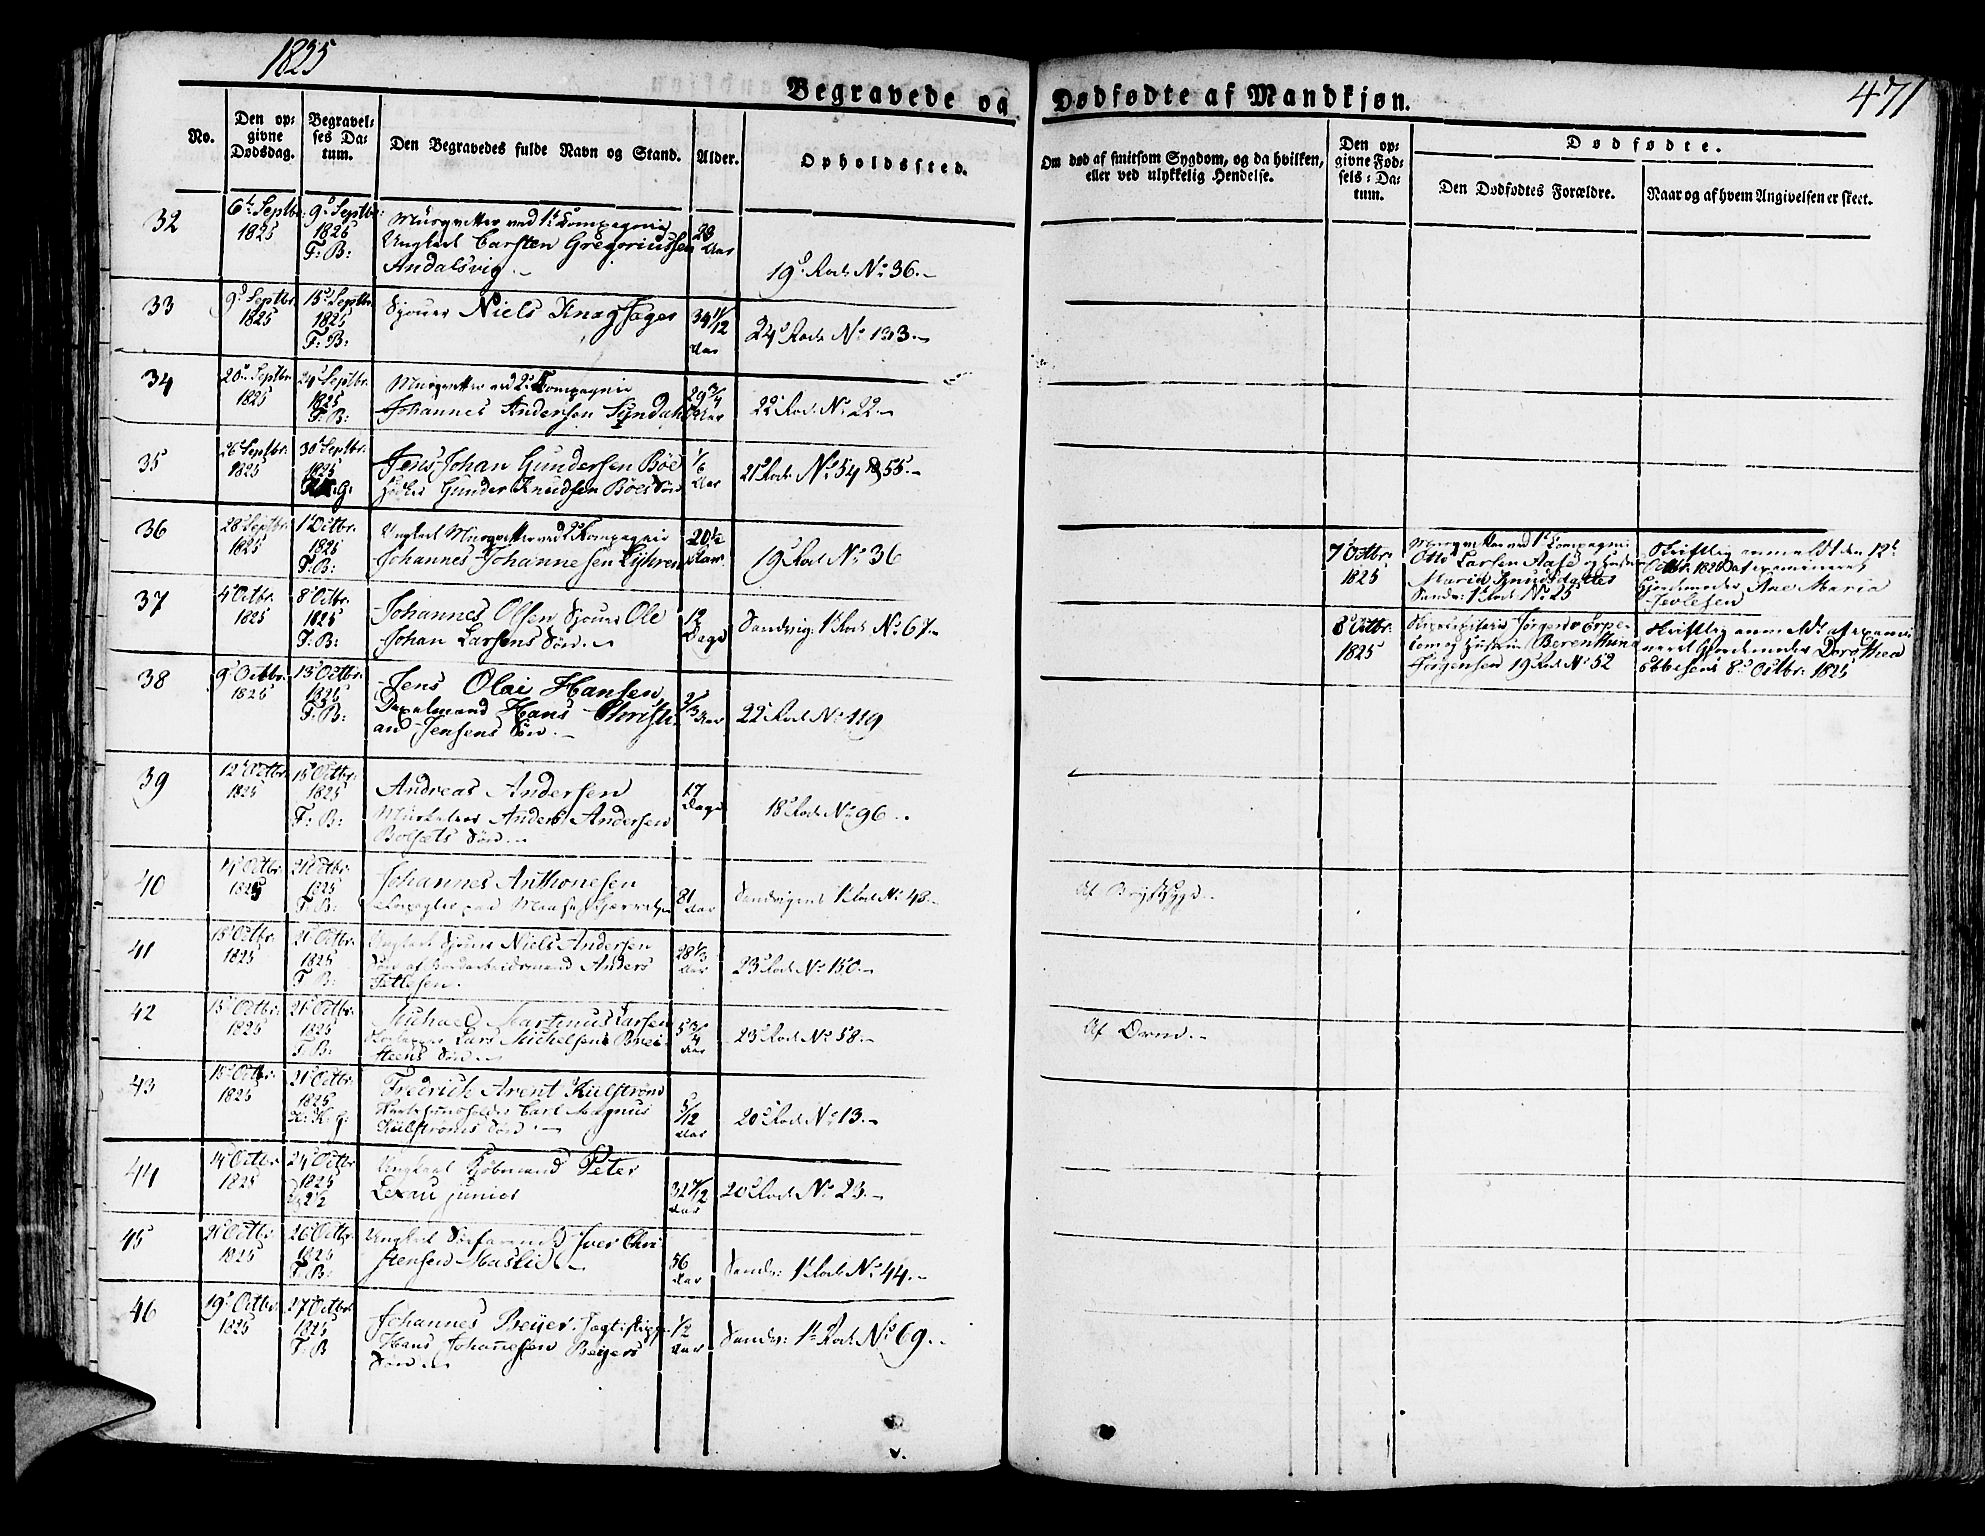 1825
471
Begravede og Dødfødte af Mandkjøn.
No.
Den opgivne Dødsdag.
Begravelses Datum.
Den Begravedes fulde Navn og Stand.
Alder.
Opholdssted.
Om død af smitsom Sygdom, og da hvilken,
eller ved ulykkelig Hendelse.
Den opgivne Fødsels-Datum.
Dødfødte.
Den Dødfødtes Forældre.
Naar og af hvem Angivelsen er skeet.
32
6t Septbr: 1825
9d Septbr: 1825 F: B:
Musqvetter ved 1t Compagnie
Ungkarl Carsten Gregoriussen
Andalsvig.
28 Aar
19d Rode No 36.
33
9d Septbr 1825
15d Septbr 1825 F: B:
Sjouer Niels Knag
34 11/12 Aar
24d Rode No 133.
34
20d Septbr 1825
24d Septbr. 1825 F: B:
Musqvetter ved 2d Compagnie
Johannes Andersen
29 3/4 Aar
22d Rode No 22.
35
26d Septbr. 1825
30d Septbr. 1825
Jens Johan Gundersen Böe
Gunder Knudsen Böes Sön
1/6 Aar
21d Rode No 54 & 55.
36
28d Septbr. 1825
1d Octbr. 1825 F: B:
Ungkarl Musqvetter ved 2d Compagnie
Johannes Johannesen
20 1/2 Aar
19d Rode No 36
7d Octbr: 1825
Musqvetter ved 1t Compagnie
Otto Larsen Aase og Hustru
Maria Knudsdatter
Sandv: 1t Rode No 25
Skriftlig anmeldt den 12t
Octbr. 1825 af examineret
Gjordemoder Ane Maria
37
4d Octbr. 1825
8d Octbr. 1825 F: B:
Johannes Olsen Sjouer Ole
Johan Larsens Sön.
12 Dage
Sandvig: 1t Rode No 67.
8d Octbr. 1825
Jörgensen 19d Rode No 52
Skriftlig anmeldt af exami
neret Gjordemoder Dorothea
Ebbesen 8d Octbr: 1825
38
9d Octbr. 1825
13d Octbr. 1825 F: B:
Jens Olai Hansen
Hans Christi
an Jensens Sön.
2/3 Aar
22d Rode No 119
39
12d Octbr. 1825
15d Octbr: 1825 F: B:
Andreas Andersen
Anders Andersen
Sön.
17 Dage
18d Rode No 96.
40
14d Octbr. 1825
21d Octbr. 1825 F: B:
Johannes Anthonesen
81 Aar
Sandvigens 1t Rode No 48.
Af Brystsyge.
41
15d Octbr. 1825
21d Octbr. 1825 F: B:
Ungkarl Sjouer Niels Andersen
Sön af Anders
28 1/3 Aar
23d Rode No 150.
42
15d Octbr. 1825
21d Octbr. 1825 F: B:
Michael Martinus Larsen
Lars Michelsen
Sön.
5 3/4 Aar
23d Rode No 58.
Af Orm.
43
15d Octbr: 1825
21d Octbr: 1825
Fredrich Arent Külströms
Carl Magnus
Külströms Sön.
5/12 Aar
20d Rode No 13.
44
14d Octbr 1825
24d Octbr 1825
Ungkarl Kjöbmand Peter
Lexau junior
32 7/12 Aar
20d Rode No 23.
45
21d Octbr 1825
26d Octbr. 1825 F: B:
Ungkarl Iver Chri
stensen
56 Aar
Sandv: 1t Rode No 44.
46
19d Octbr. 1825
27d Octbr. 1825 F: B
Johannes Beyer
Hans Johannesen Beyers
Sön.
1/2 Aar
Sandv: 1t Rode No 69.